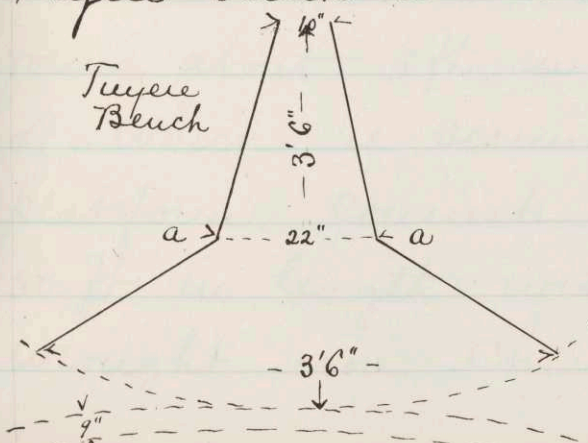 10"
Tuyere
Bench
3' 6"
a
22"
a
3' 6"
9"